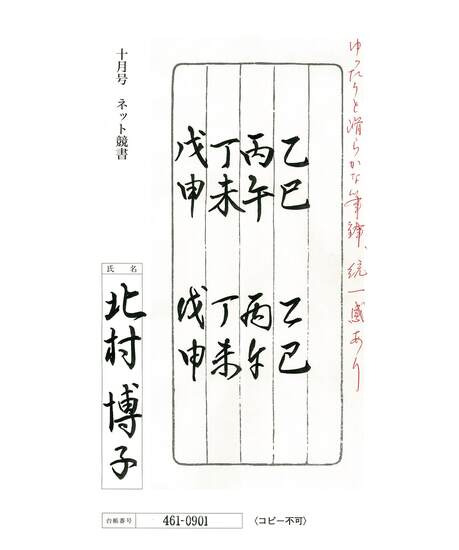 ゆったりと滑らかな筆鋒、統一感あり
乙巳 乙巳
丙午 丙午
丁未 丁未
戊申 戊申
十月号 ネット競書
氏 名
北村博子
台帳番号 461-0901 〈コピー不可〉